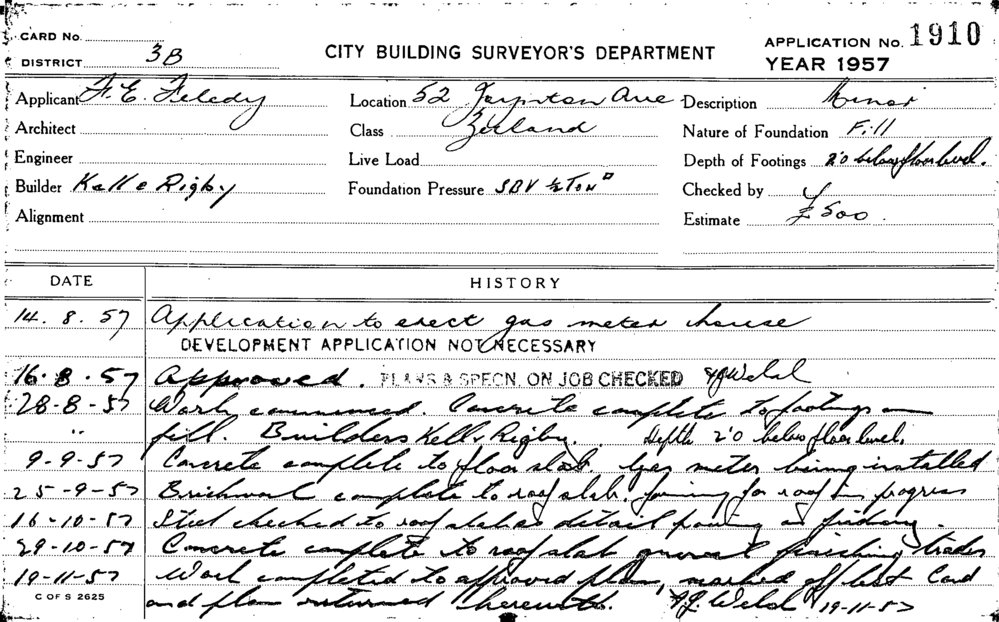 CARD No.
DISTRICT 3B
CITY BUILDING SURVEYOR'S DEPARTMENT
APPLICATION No. 1910
YEAR 1957
Applicant F. E. Location 52 Joynton Ave Description Minor
Architect Class Zetland Nature of Foundation Fill
Engineer Live Load Depth of Footings 2'0 below floor level.
Builder Kell & Rigby Foundation Pressure SBV ½ Ton □ Checked by
Alignment Estimate £500.
DATE HISTORY
14. 8. 57 Application to erect gas meter house
DEVELOPMENT APPLICATION NOT NECESSARY
16. 8. 57 Approved. PLANS & SPECN. ON JOB CHECKED
28-8-57 Work commenced. Concrete complete to footings on
" fill. Builders Kell & Rigby. Depth 2'0 below floor level.
9-9-57 Concrete complete to floor slab. Gas meter being installed
25-9-57 Brickwork complete to roof slab. forming for roof in progress
16-10-57 Steel checked to roof slab as detail pouring on friday.
29-10-57 Concrete complete to roof slab general finishing trades
19-11-57 Work completed to approved plan, marked off list Card
and plan returned herewith. 19-11-57
C OF S 2625